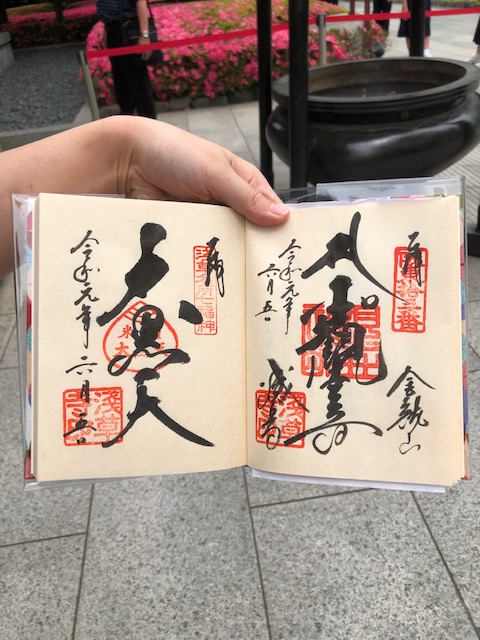 奉拝
金龍山
聖観世音
浅草寺
令和元年
六月五日
奉拝
浅草名所七福神
大黒天
令和元年六月五日
浅草